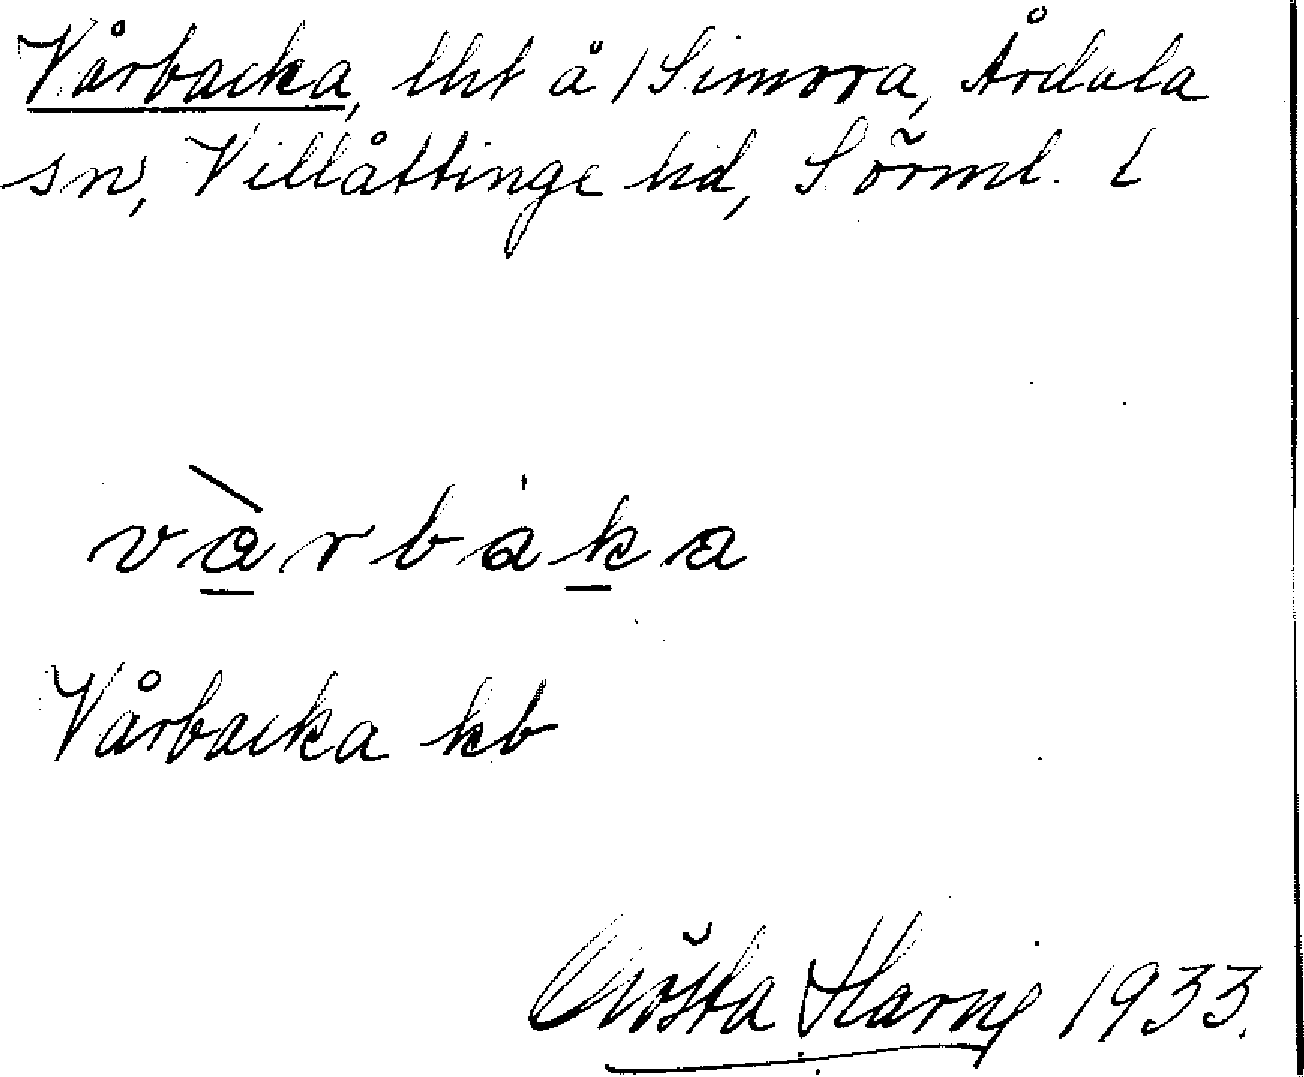 Vårbacka, lht å /Simorra, Årdala
sn, Villåttinge hd, Sörml. L
vàrbáka
Vårbacka kb
Gösta 1933.